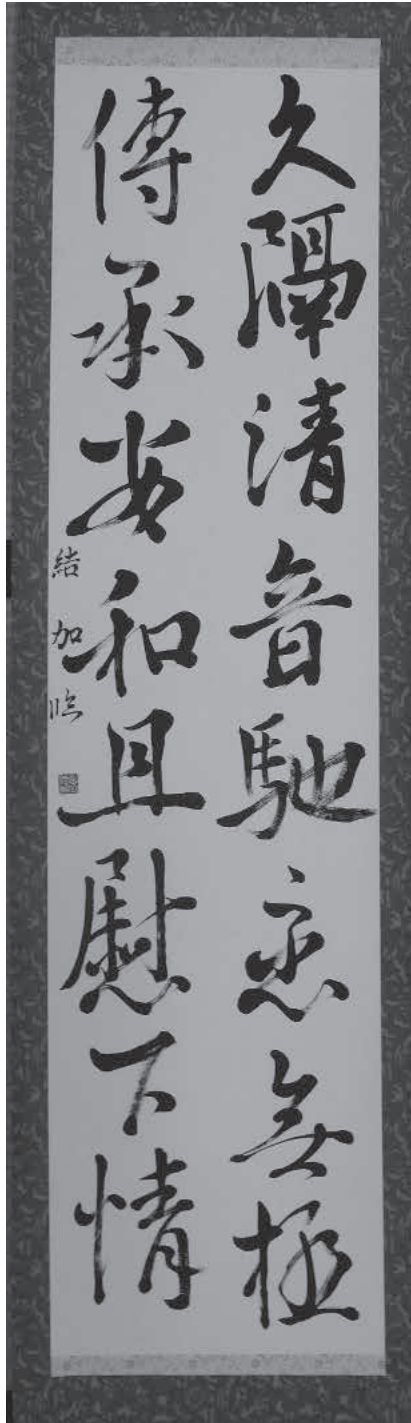 久隔清音馳恋無極
傳承安和且慰下情
結加臨